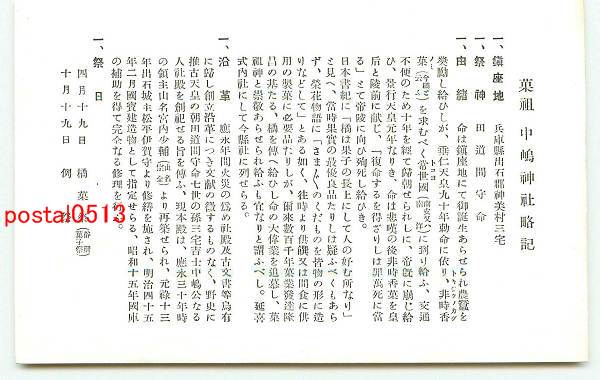 菓祖 中嶋神社略記
一、鎮座地 兵庫縣出石郡神美村三宅
一、祭神 田道間守命
一、由緒 命は鎮座地にて御誕生あらせられ農蠶を
奬勵し給ひしが、垂仁天皇九十年勅命に依り、非時香
菓を求むべく常世國に到り給ふ、交通
不便のため十年を經て歸朝せられしに、帝既に崩じ給
ひ、景行天皇元年なりき、命は悲嘆の後非時香菓を皇
后と陵前に献じ、「復命する を得ざりしは罪萬死に當
る」とて帝陵に向ひ殉死し給ひき。
日本書紀に「橘は果子の長上にして人の好む所なり」
と見へ、當時果實の最優良品たりしは疑ふべくもあら
ず、榮花物語に「さま〴〵のくだものを皆物の形に造
りなどして」とある如く、往時より供饌又は間食に供
用の製菓に必要品たりしが、爾來數百千年菓業發達隆
昌の基たる、橘を傳へ給ひし命の大偉業を追慕し、菓
祖神と崇敬あらせられ給ふも宜なりと謂ふべし。延喜
式内社にして今縣社に列せらる。
一、沿革 應永年間火災の爲め社殿及古文書等烏有
に歸し創立沿革につき文献の徴するものなく、野史に
推古天皇の朝田道間守命七世の孫三宅吉士中嶋公なる
人社殿を創祀せる旨を傳ふ、現本殿は、應永三十年時
の領主山名宮内少輔より再築せられ、元祿十三
年出石城主松平伊賀守より修繕を施され、明治四十五
年二月國寳建造物として指定せらる、昭和十五年國庫
の補助を得て完全なる修理を
一、祭日
四月十九日 橘菓
十月十九日 例
postal0513